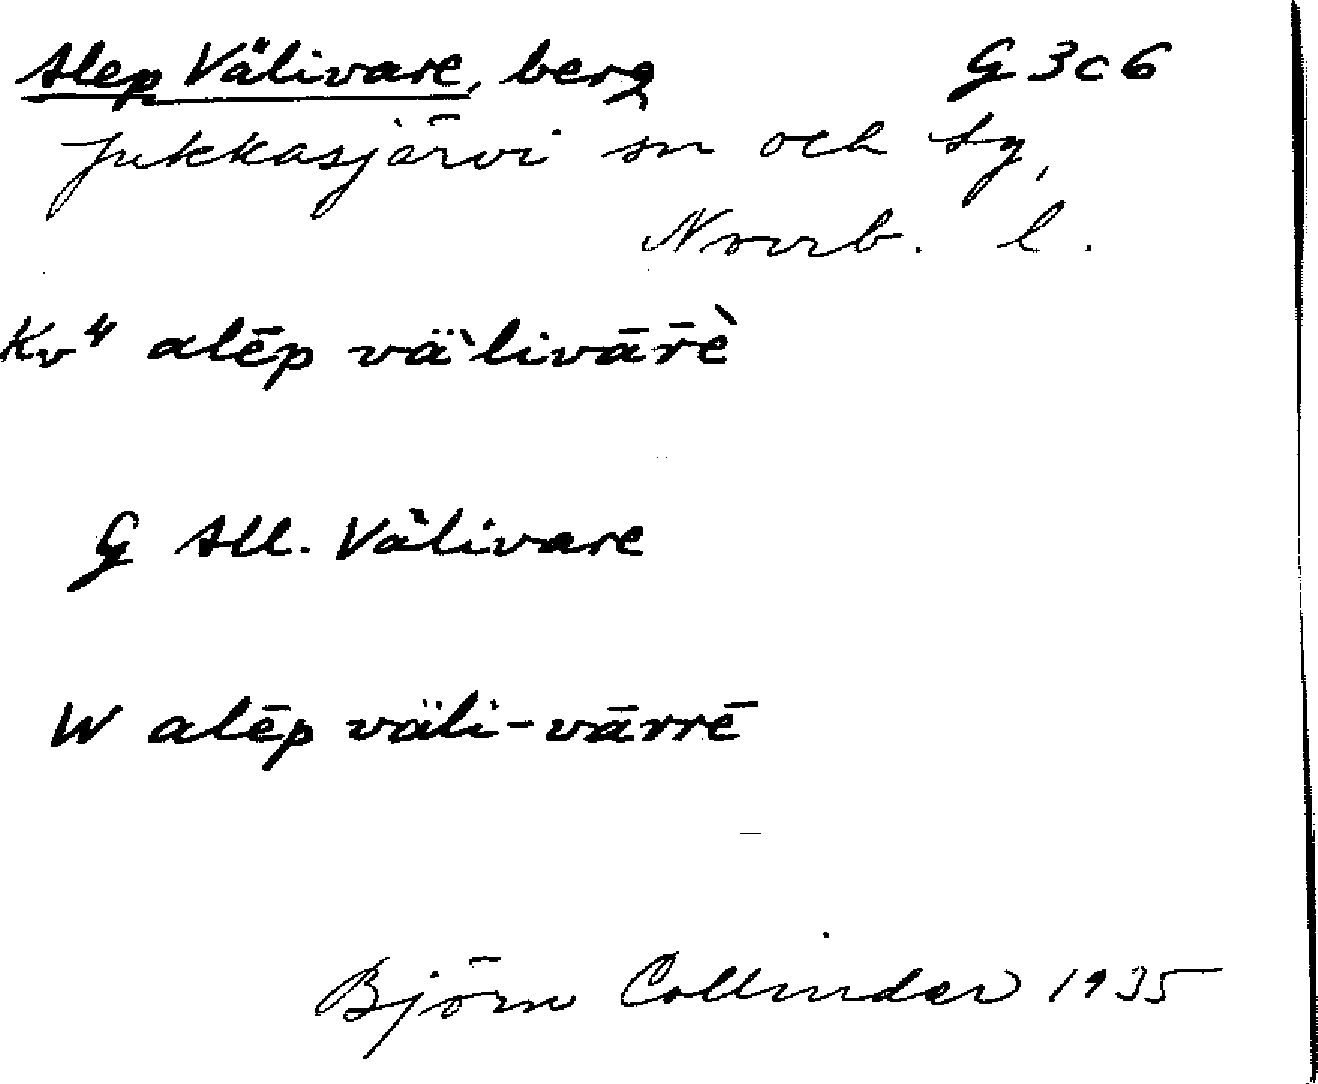 Alep Välivare, berg G 3c6
Jukkasjärvi sn och tg,
Norrb. l.
Kv⁴ alēp vä`livār̄ḕ
G All. Välivare
W alēp väli-vārrē
Björn Collinder 1935